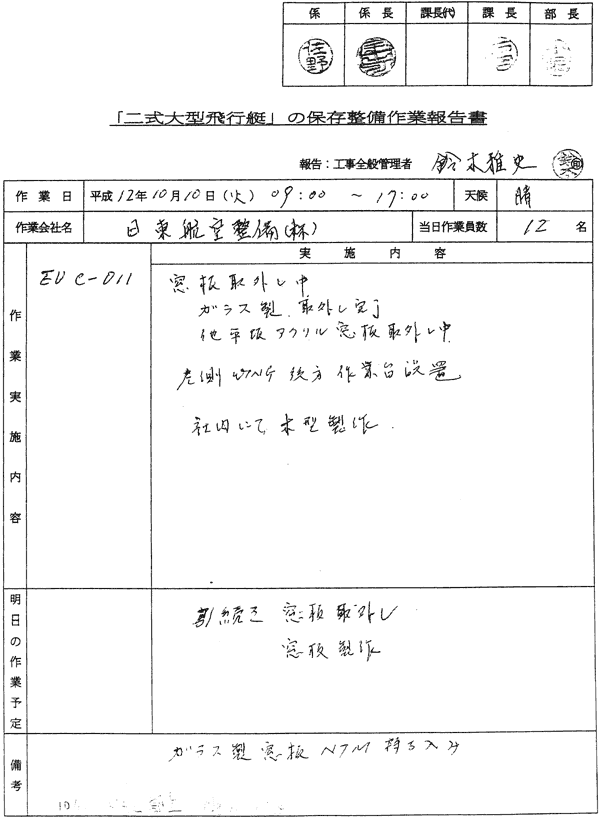 係 係長 課長(代) 課長 部長
佐野
「二式大型飛行艇」の保存整備作業報告書
報告：工事全般管理者 鈴木雅史
作業日 平成12年10月10日(火) 09:00 ～ 17:00 天候 晴
作業会社名 日東航空整備(株) 当日作業員数 12 名
実施内容
作業実施内容
窓板取外し中
ガラス製、取外し完了
他平板アクリル窓板取外し中
左側 WING 後方 作業台設置
社内にて、木型製作.
明日の作業予定
引続き 窓板取外し
窓板製作
備考
ガラス製窓板 NTM 持ち入み